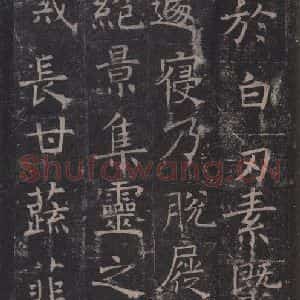 於白刃素既
遂寢乃脫屣
絕景集靈之
長甘蔬菲
Shufawang.CN